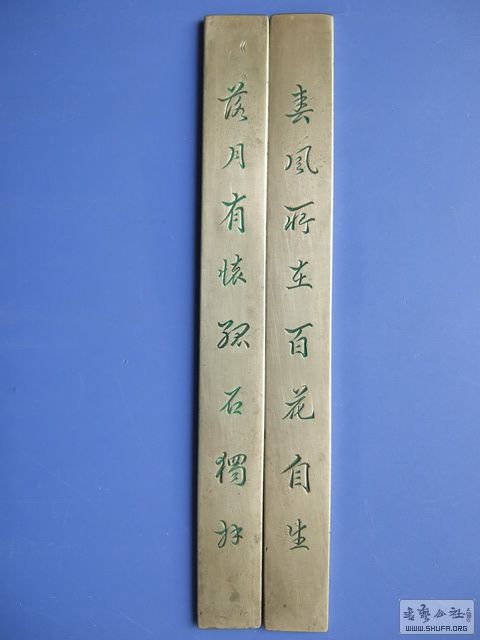 春風所在百花自生
落月有懷孤石獨
書藝公社
WWW.SHUFA.ORG